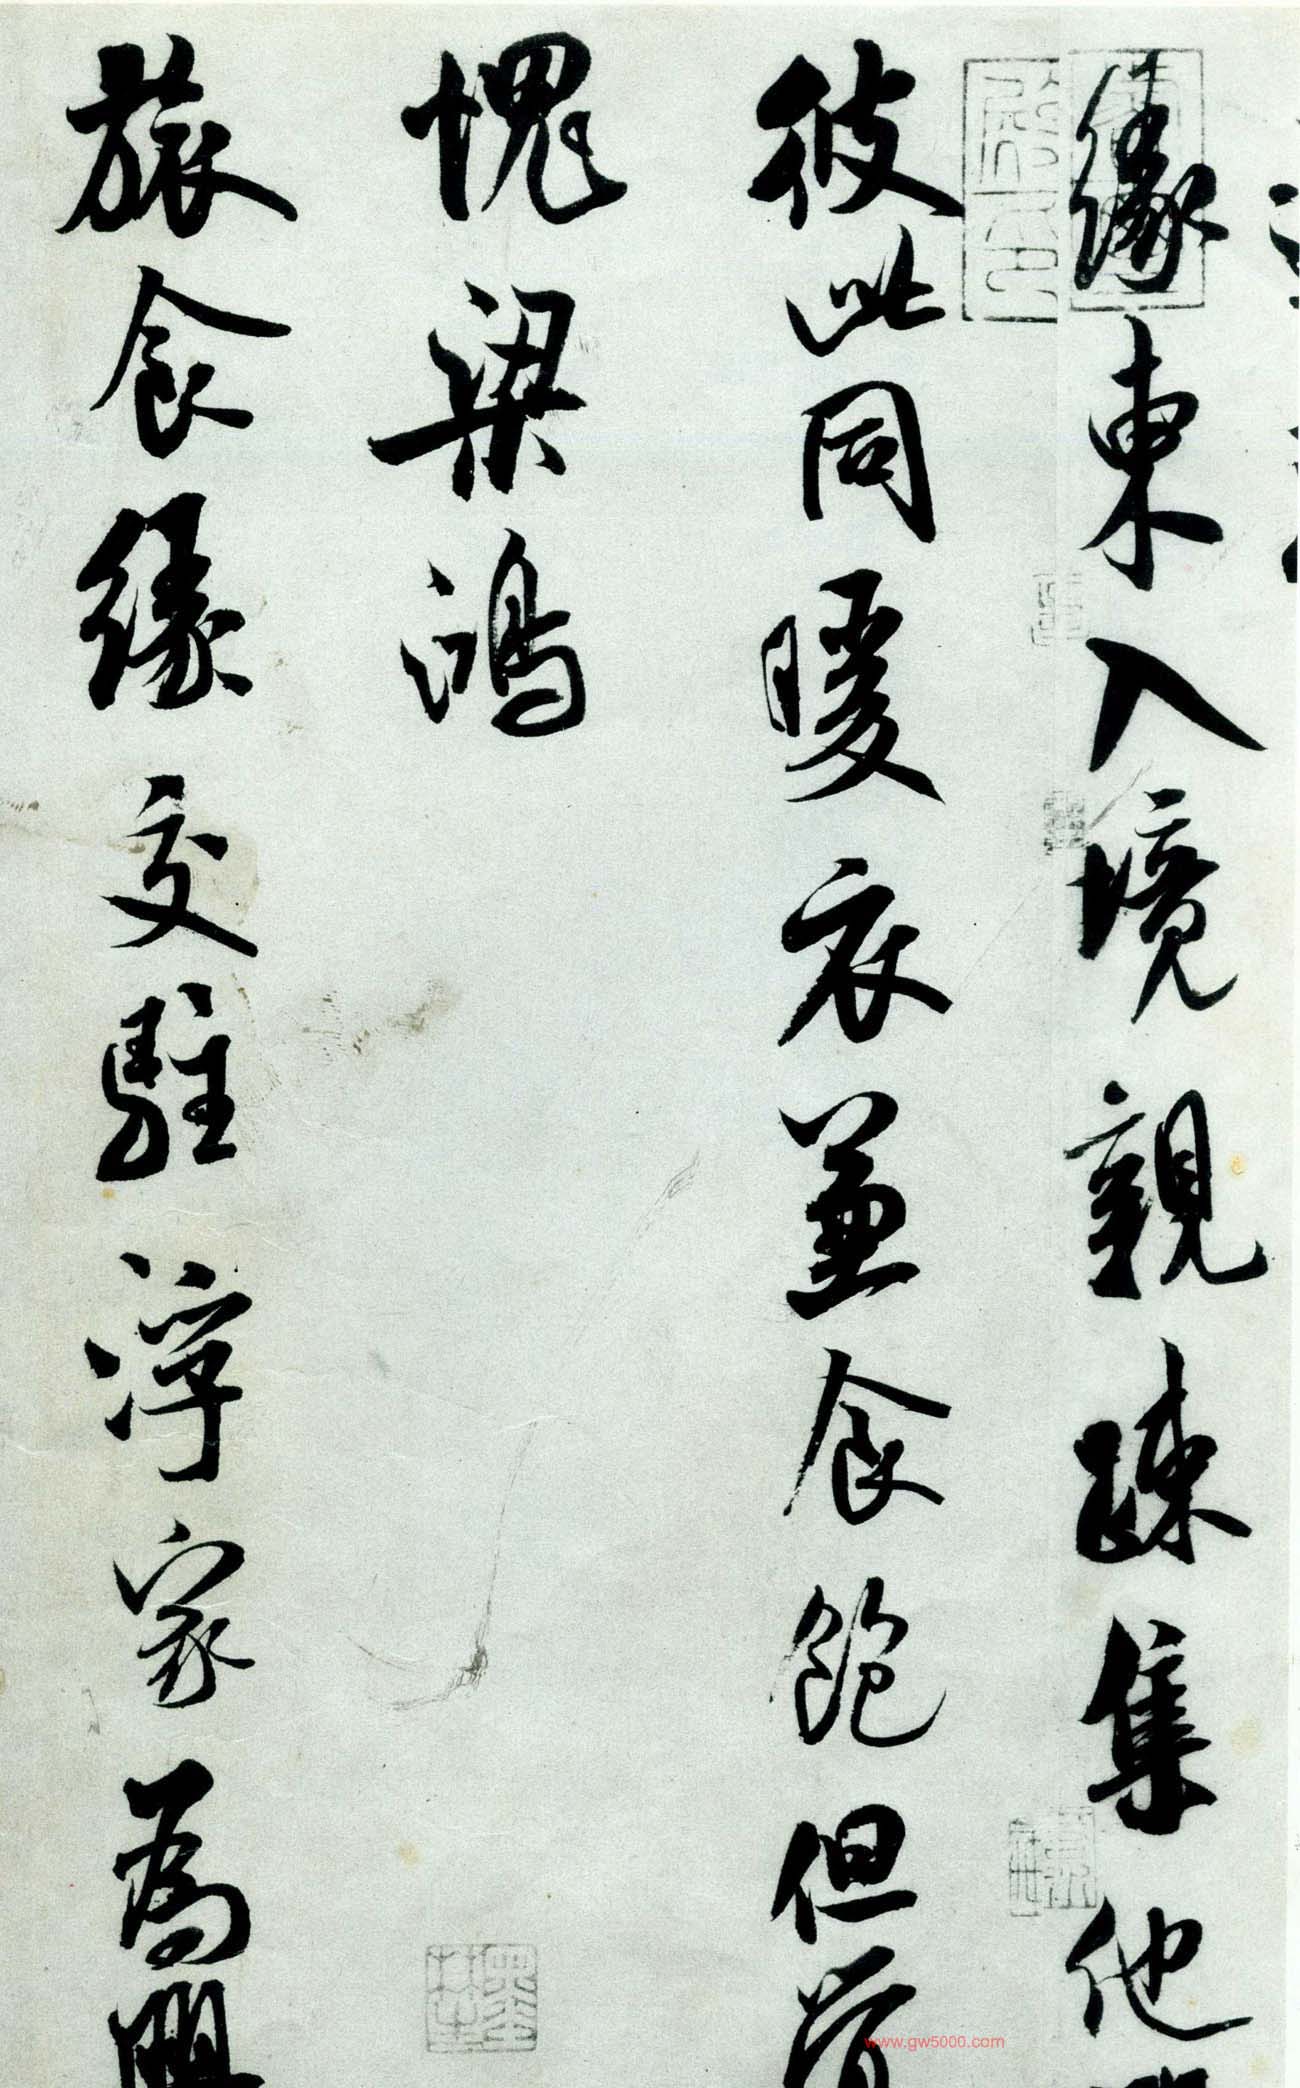 緣東入境親踈集他
彼此同暖衣蓋食飽但
愧梁鴻
旅食緣交駐浮家為興
www.gw5000.com